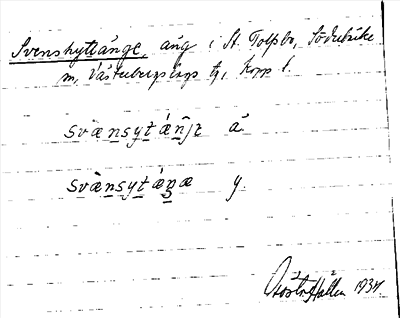 Svenshyttänge, äng i St. Tolpbo, Söderbäke
m, Västerbergslags tg, Kopp l.
svæ̀nsytǽnjɛ ä.
svæ̀nsytǽŋæ y.
Gösta Hallén 1934.